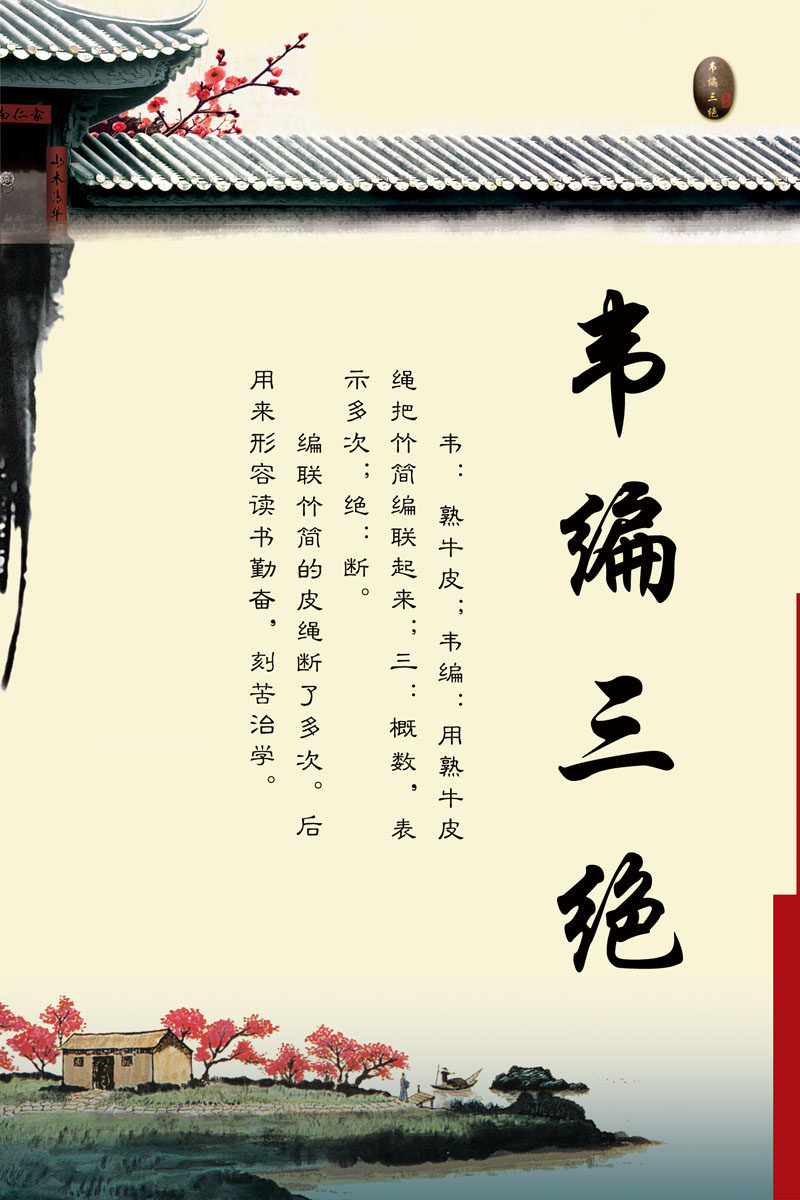 韦编三绝
韦编三绝
韦：熟牛皮；韦编：用熟牛皮
绳把竹简编联起来；三：概数，表
示多次；绝：断。
编联竹简的皮绳断了多次。后
用来形容读书勤奋，刻苦治学。